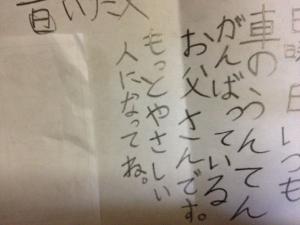 曜日いつも
車のうんてん
がんばっている
お父さんです。
もっとやさしい
人になってね。